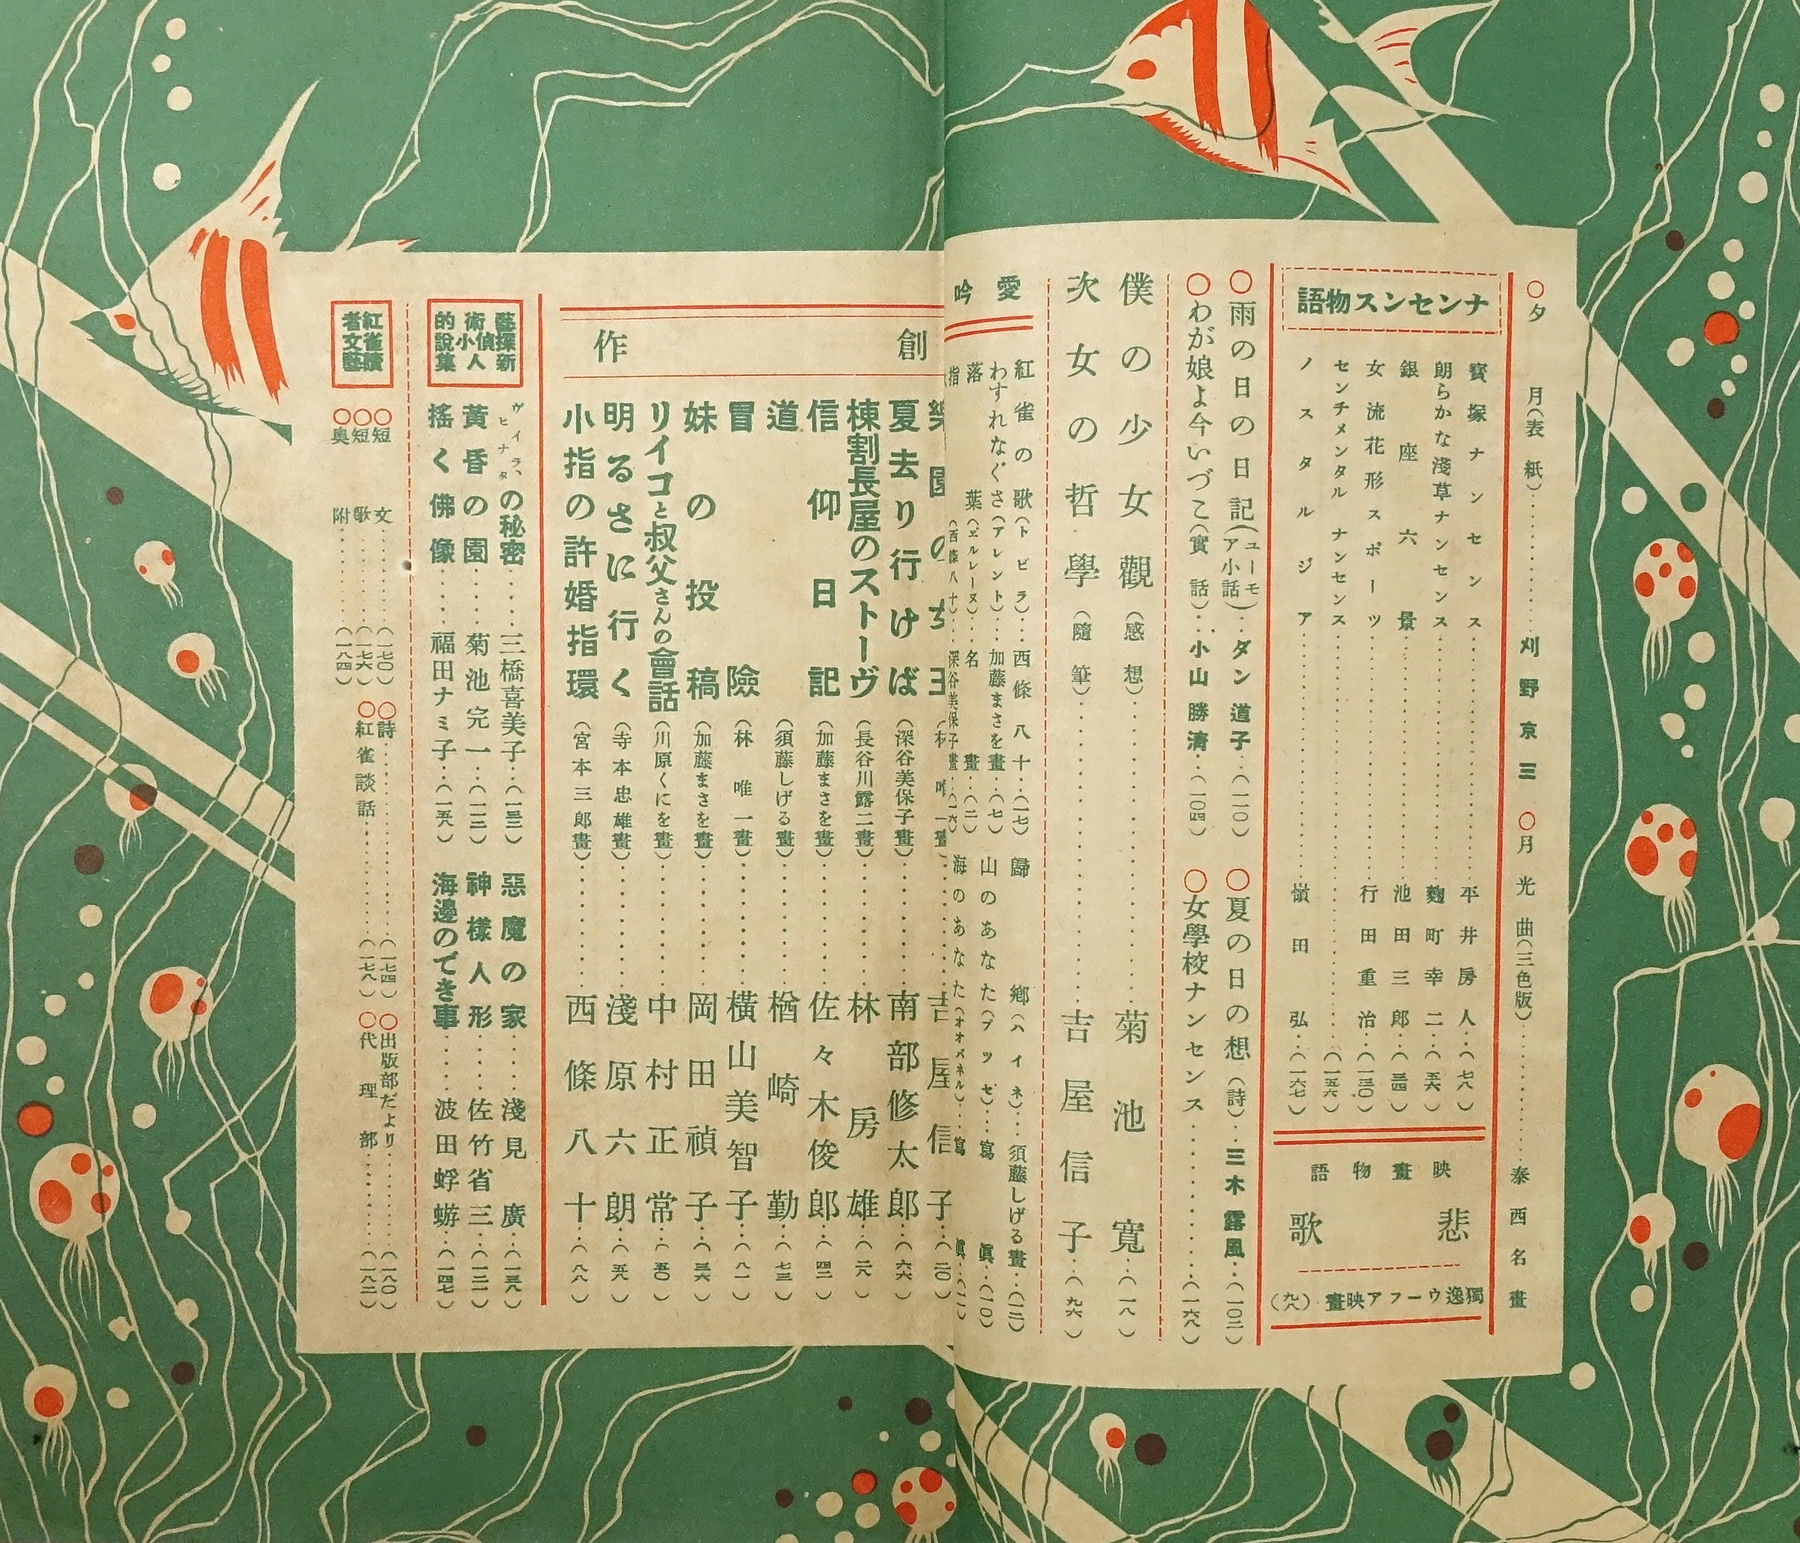 ○夕月(表紙)……刈野京三
○月光曲(三色版)……泰西名畫
ナンセンス物語
寶塚ナンセンス……平井房人…(七八)
朗らかな淺草ナンセンス……麴町幸二…(五六)
銀座六景……池田三郎…(三四)
女流花形スポーツ……行田重治…(三〇)
センチメンタルナンセンス……(一五六)
ノスタルジア……嶺田弘…(一六七)
映畫物語
悲歌
獨逸ウーファ映畫(九八)
○雨の日の日記(ユーモア小話)…ダン道子…(一一〇)
○夏の日の想(詩)…三木露風…(一〇二)
○わが娘よ今いづこ(實話)…小山勝淸…(一〇四)
○女學校ナンセンス……(一六八)
僕の少女觀(感想)……菊池寬…(一八)
次女の哲學(隨筆)……吉屋信子…(九六)
愛吟
紅雀の歌(トビラ)…西條八十…(一七)
歸鄕(ハイネ)…須藤しげる畫…(一二)
わすれなぐさ(アレント)…加藤まさを畫…(七)
山のあなた(ブッセ)…寫眞…(一〇)
落葉(ヹルレーヌ)…名畫…(一一)
海のあなた(オオバネル)…寫眞…(一一)
指(西條八十)…深谷美保子畫…(一六)
創作
樂園の(林唯一畫)……吉屋信子…(二〇)
夏去り行けば(深谷美保子畫)……南部修太郎…(六六)
棟割長屋のストーヴ(長谷川露二畫)……林房雄…(二八)
信仰日記(加藤まさを畫)……佐々木俊郎…(四二)
道(須藤しげる畫)……楢崎勤…(七三)
冒險(林唯一畫)……橫山美智子…(八一)
妹の投稿(加藤まさを畫)……岡田禎子…(三六)
リイコと叔父さんの會話(川原くにを畫)……中村正常…(五〇)
明るさに行く(寺本忠雄畫)……淺原六朗…(五九)
小指の許婚指環(宮本三郎畫)……西條八十…(八八)
新人偵探小說集
藝術的
ヴィラ、ヒナタの秘密……三橋喜美子…(一三三)
惡魔の家……淺見廣…(一三八)
黃昏の園……菊池完一…(一三)
神樣人形……佐竹省三…(一二一)
搖く佛像……福田ナミ子…(一五八)
海邊のでき事……波田蜉蝣…(一四七)
紅雀讀者文藝
○短文……(一七〇)
○詩……(一七四)
○出版部だより……(一八〇)
○短歌……(一七六)
○紅雀談話……(一七八)
○代理部……(一八二)
○奧附……(一八四)